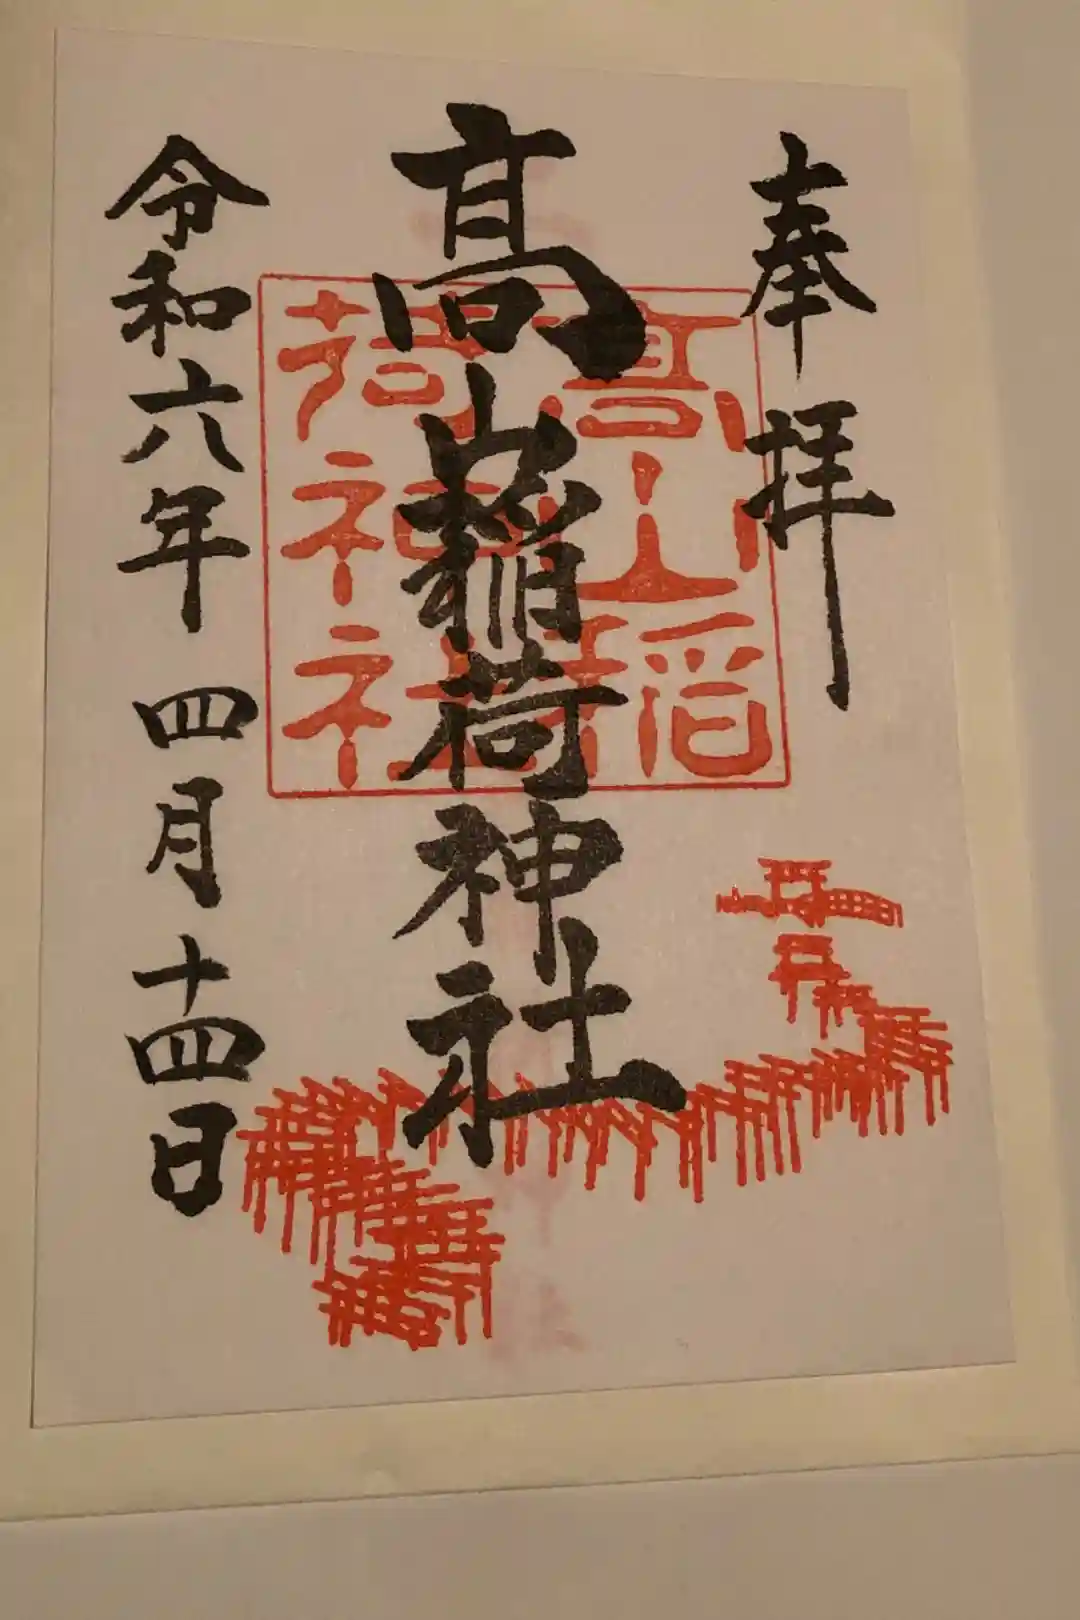 奉拝
髙山稲荷神社
令和六年四月十四日
髙山稲
荷神社